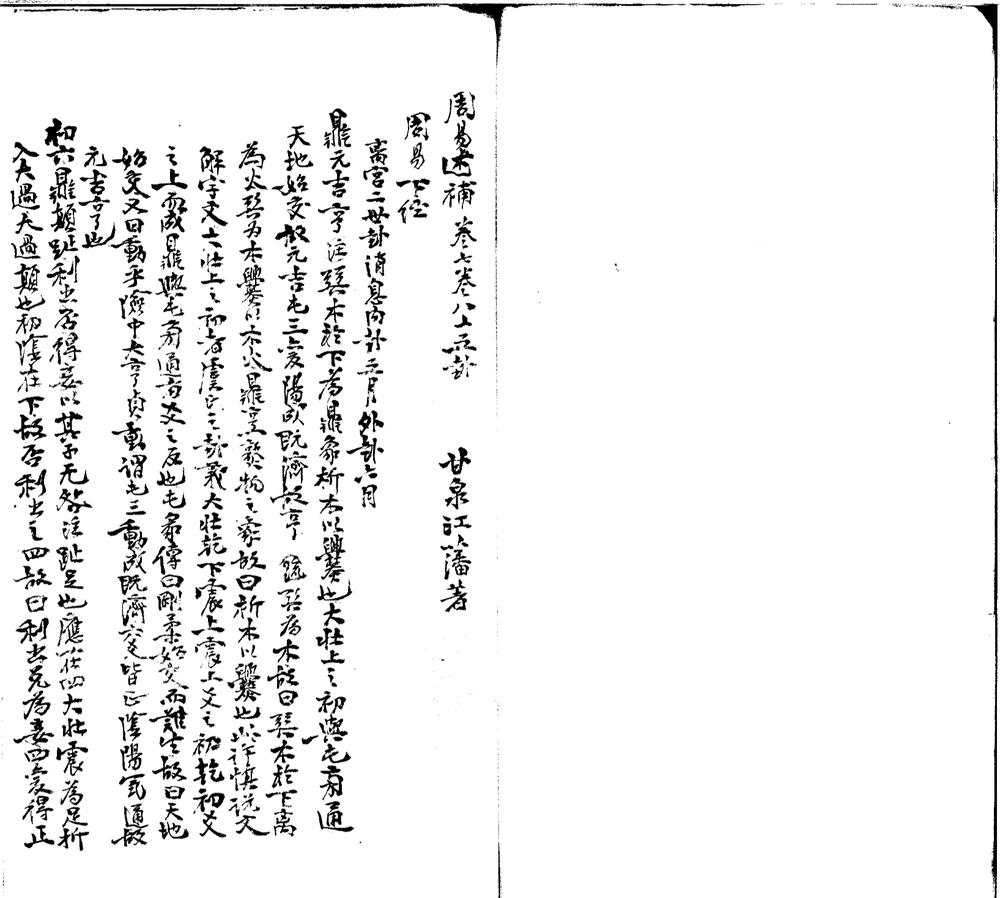 周易述補 卷七卷八上五卦 甘泉江藩著
周易下經
離宮二世卦消息內卦五月外卦六月
鼎元吉亨注巽木於下為鼎象析木以爨也大壯上之初與屯旁通
天地始交故元吉屯三變陽臥既濟故亨 疏巽為木故曰巽木於下離
為火巽为木爨以木火鼎烹飪物之象故曰析木以爨也此許慎說文
解字文大壯上之初者虞氏之卦義大壯乾下震上震上爻之初乾初爻
之上而成鼎與屯旁通旁爻之反也屯彖傳曰剛柔始交而難生故曰天地
始交又曰動乎險中大亨貞動謂屯三動成既濟六爻皆正陰陽氣通故
元吉亨也
初六鼎顛趾利出否得妾以其子无咎注趾足也應在四大壯震為足折
入大過大過顛也初陰在下故否利出之四故曰利出兌為妾四變得正